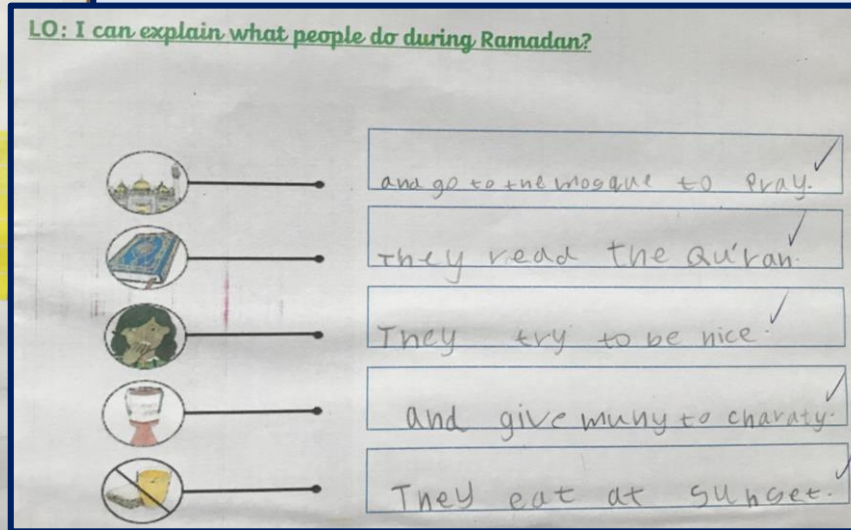 LO: I can explain what people do during Ramadan?
and go to the mosque to pray.
They read the Qu'ran.
They try to be nice.
and give muny to charaty.
They eat at sunset.